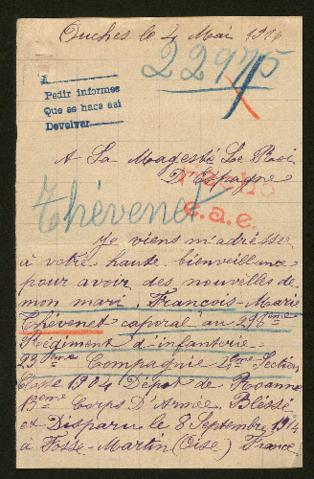 Ouches le 4 Mai 1916
22975
A
Pedir informes
Que se hace asi
Devolver
A Sa Magesté Le Roi
D'Espagne
Thévenet
e.a.e.
Je viens m'adresse
à votre haute bienveillance
pour avoir des nouvelles de
mon mari, François-Marie
Thévenet caporal au 298ème
Régiment d'infanterie
23ème Compagnie 4ème Section
Classe 1904 Dépôt de Roanne
13ème Corps D'Armée, Bléssé
et Disparu le 8 Septembre 1914
à Fosse-Martin (Oise) France